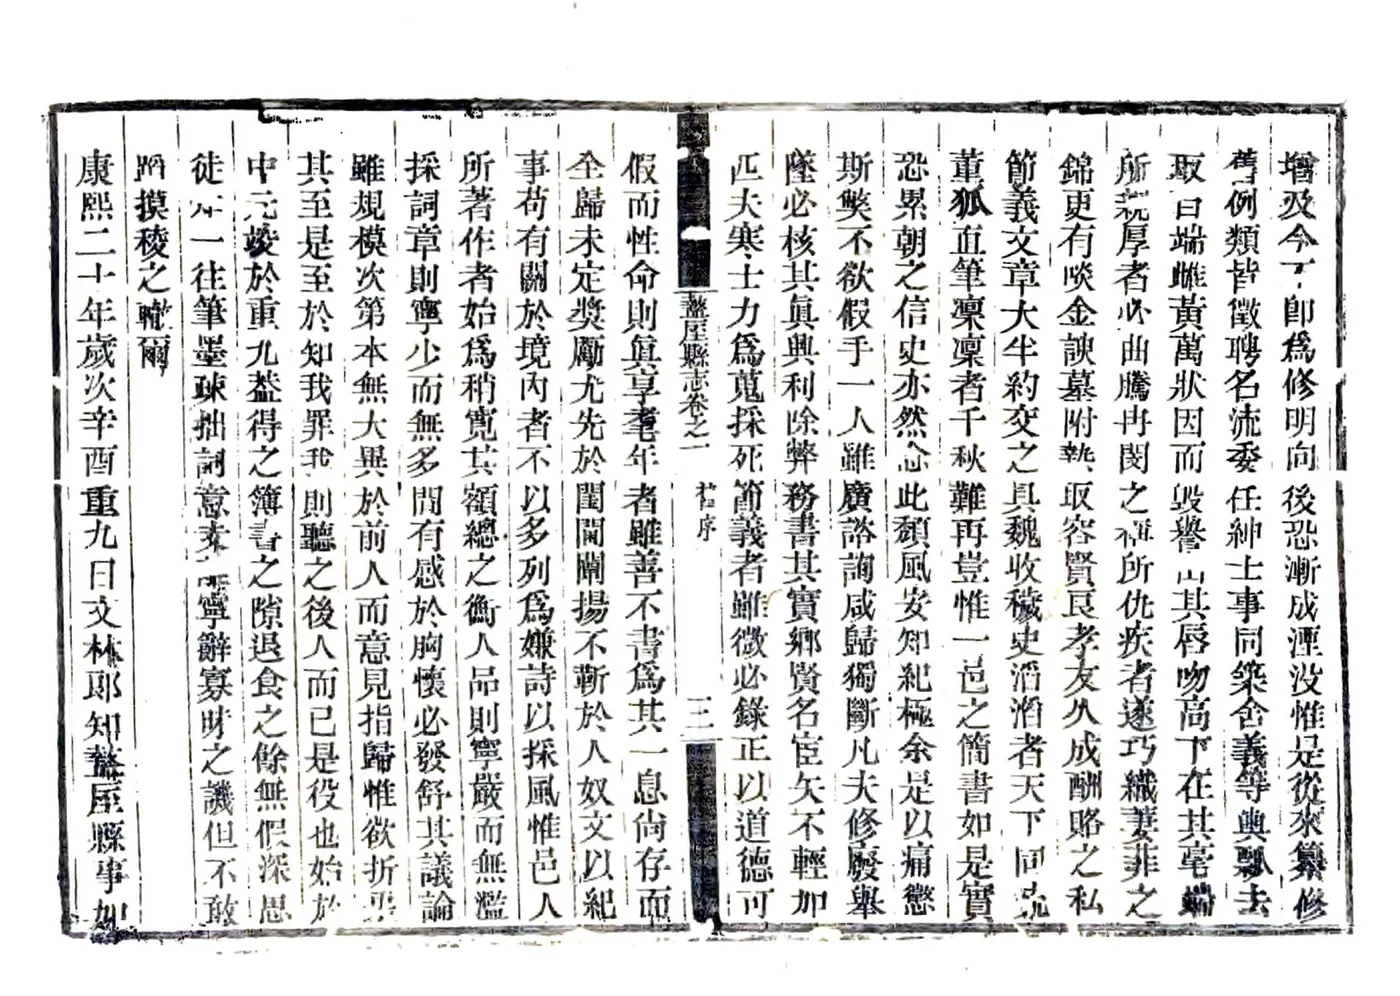 增及今不卽爲修明向後恐漸成湮没惟是從來纂修
舊例類皆徵聘名流委任紳士事同築舍義等輿瓢去
取百端雌黃萬狀因而毀譽由其唇吻高下在其毫端
所親厚者必曲騰冉閔之稱所仇疾者遂巧織萋菲之
錦更有啖金諛墓附埶取容賢良孝友久成酬賂之私
節義文章大半約交之具魏收穢史滔滔者天下同
董狐直筆凛凛者千秋難再豈惟一邑之簡書如是實
恐累朝之信史亦然念此頹風安知紀極余是以痛懲
斯獘不欲假手一人雖廣諮詢咸歸獨斷凡夫修廢舉
墜必核其眞興利除弊務書其實鄉賢名宦矢不輕加
匹夫寒士力爲蒐採死節義者雖微必錄正以道德可
盩厔縣志卷之一
序
三
假而性命則眞享耄年者雖善不書爲其一息尙存而
全歸未定獎勵尤先於閨閫闡揚不靳於人奴文以紀
事苟有關於境內者不以多列爲嫌詩以採風惟邑人
所著作者始爲稍寬其額總之衡人品則寧嚴而無濫
採詞章則寧少而無多間有感於胸懷必發舒其議論
雖規模次第本無大異於前人而意見指歸惟欲折
其至是至於知我罪我則聽之後人而已是役也始於
中元竣於重九葢得之簿書之隙退食之餘無假深思
徒尔一往筆墨疎拙詞意寧辭寡昧之譏但不敢
蹈摸稜之轍爾
康熙二十年歲次辛酉重九日文林郎知盩厔縣事加